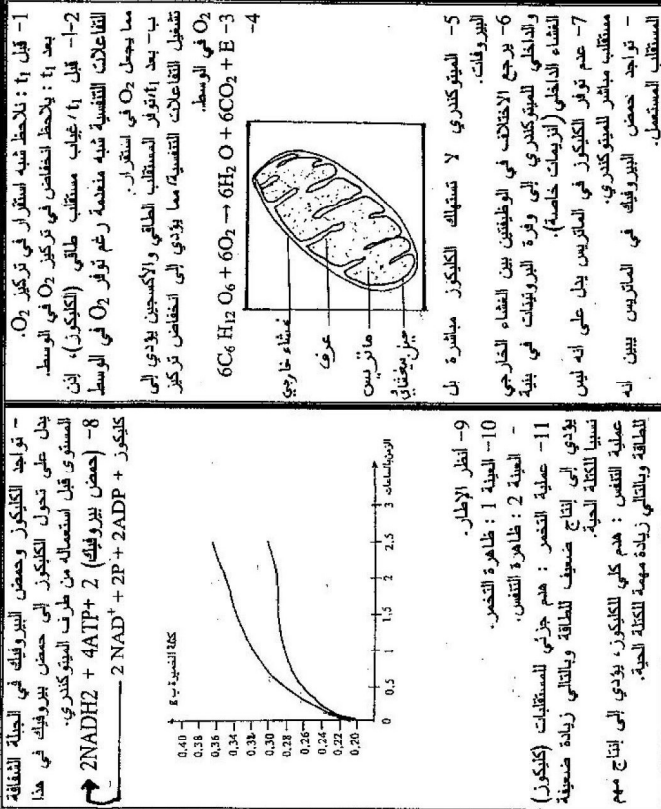 1- قبل t₁ : نلاحظ شبه استقرار في تركيز O₂.
بعد t₁ : يلاحظ انخفاض في تركيز O₂ في الوسط.
2-أ- قبل t₁/ غياب مستقلب طاقي (الكليكوز)، إذن
التفاعلات التنفسية شبه منعدمة رغم توفر O₂ في الوسط
مما يجعل O₂ في استقرار.
ب- بعد t₁/توفر المستقلب الطاقي والأكسجين يؤدي إلى
تشغيل التفاعلات التنفسية/مما يؤدي إلى انخفاض تركيز
O₂ في الوسط.
3- 6C₆ H₁₂ O₆ + 6O₂ → 6H₂ O + 6CO₂ + E
4-
غشاء خارجي
عرف
ماتريس
حيز بيغشائي
5- الميتوكندري لا تستهلك الكليكوز مباشرة بل
البيروفات.
6- يرجع الاختلاف في الوظيفتين بين الغشاء الخارجي
والداخلي للميتوكندري إلى وفرة البروتينات في بنية
الغشاء الداخلي (أنزيمات خاصة).
7- عدم توفر الكليكوز في الماتريس يدل على انه ليس
مستقلب مباشر للميتوكندري.
- تواجد حمض البيروفيك في الماتريس يبين انه
المستقلب المستعمل.
- تواجد الكليكوز وحمض البيروفيك في الجبلة الشفافة
يدل على تحول الكليكوز إلى حمض بيروفيك في هذا
المستوى قبل استعماله من طرف الميتوكندري.
8- (حمض بيروفيك) 2 + 2NADH2 + 4ATP
كليكوز + 2 NAD⁺ + 2P + 2ADP
كتلة الخميرة ب g
0,40
0,38
0,36
0,34
0,32
0,30
0,28
0,26
0,24
0,22
0,20
0 0.5 1 1,5 2 2.5 3
الزمن بالساعات
9- انظر الإطار.
10- العينة 1 : ظاهرة التخمر.
- العينة 2 : ظاهرة التنفس.
11- عملية التخمر : هدم جزئي للمستقلبات (كليكوز)
يؤدي إلى إنتاج ضعيف للطاقة وبالتالي زيادة ضعيفة
نسبيا للكتلة الحية.
عملية التنفس : هدم كلي للكليكوز، يؤدي إلى إنتاج مهم
للطاقة وبالتالي زيادة مهمة للكتلة الحية.